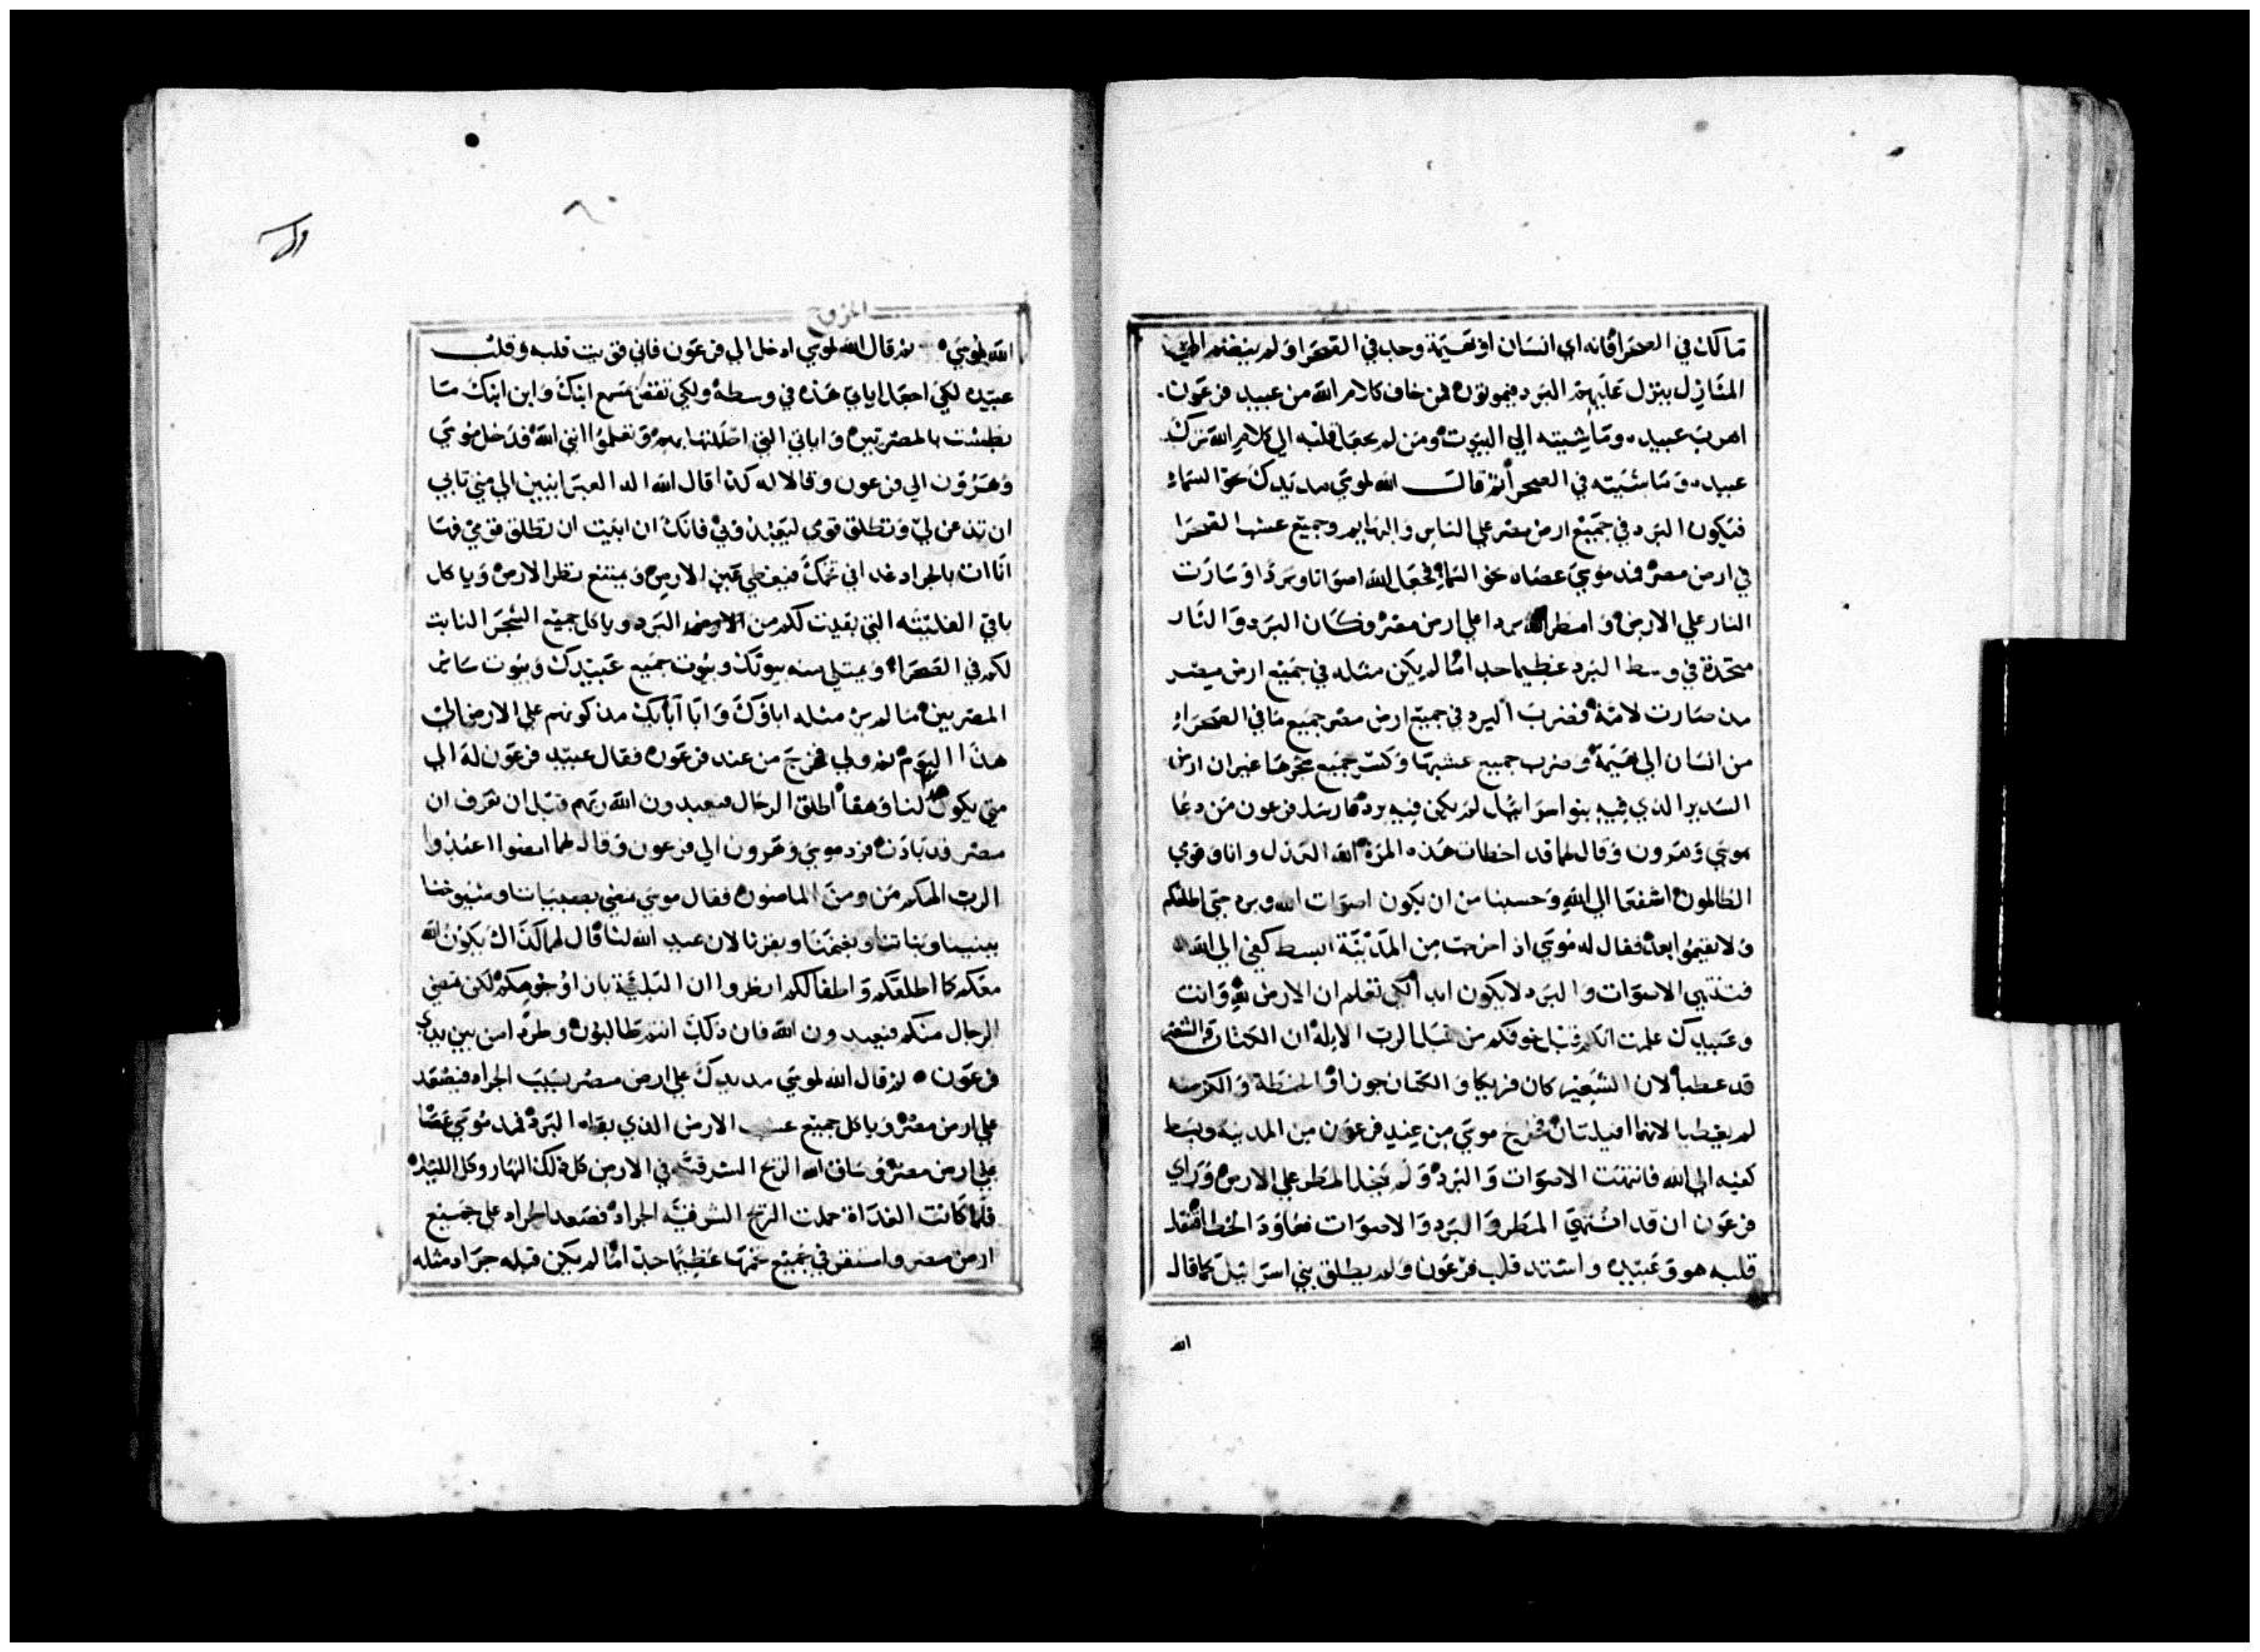 ما كان في الصحرا فانه اي انسان او بهيمة وجد في الصحرا و لم ينضم الي
المنازل ينزل عليهم البرد فيموتون فمن خاف كلام الله من عبيد فرعون
اهرب عبيده وماشيته الي البيوت ومن لم يجعل قلبه الي كلام الله ترك
عبيده وماشيته في الصحرا ثم قال الله لموسي مد يدك نحو السماء
فيكون البرد في جميع ارض مصر علي الناس والبهايم وجميع عشب الصحرا
في ارض مصر فمد موسي عصاه نحو السماء فجعل الله اصواتا وبردا وسارت
النار علي الارض و امطر الله بردا علي ارض مصر وكان البرد والنار
متحدة في وسط البرد عظيما جدا ما لم يكن مثله في جميع ارض مصر
مذ صارت لامة فضرب البرد في جميع ارض مصر جميع ما في الصحراء
من انسان الي بهيمة وضرب جميع عشبها وكسر جميع شجرها غير ان ارض
السدير الذي فيه بنو اسرائيل لم يكن فيه برد فارسل فرعون من دعا
موسي وهرون وقال لهما قد اخطات هذه المرة الله العدل وانا وقومي
الظالمون اشفعا الي الله وحسبنا من ان يكون اصوات الله وبرد حتي اطلقكم
ولا تقيموا بعد فقال له موسي اذا خرجت من المدينة ابسط كفي الي الله
فتنتهي الاصوات والبرد لا يكون ابدا لكي تعلم ان الارض لله وانت
وعبيدك علمت انكم قبل خوفكم من قبل الرب الاله ان الكتان والشعير
قد عطبا لان الشعير كان فريكا و الكتان جوزا و الحنطة و الكرسنه
لم يعطبا لانهما افيلتان فخرج موسي من عند فرعون من المدينة وبسط
كفيه الي الله فانتهت الاصوات والبرد و لم ينزل المطر علي الارض وراي
فرعون ان قد انتهي المطر والبرد والاصوات فعاود الخطا فثقل
قلبه هو وعبيده و اشتد قلب فرعون ولم يطلق بني اسرائيل كما قال
الله
الخروج
الله لموسي ثم قال الله لموسي ادخل الي فرعون فاني قويت قلبه وقلب
عبيده لكي اجعل اياتي هذه في وسطه ولكي تقص بمسمع ابنك وابن ابنك ما
بطشت بالمصريين و اياتي التي احللتها بهم وتعلموا انني الله فدخل موسي
وهرون الي فرعون وقالا له كذا قال الله اله العبرانيين الي متي تابي
ان تذعن لي وتطلق قومي ليعبدوني فانك ان ابيت ان تطلق قومي فها
انا ات بالجراد غدا في تخمك فيغطي عين الارض ويمتنع نظر الارض وياكل
باقي الفليته التي بقيت لكم من البرد وياكل جميع الشجر النابت
لكم في الصحراء ويمتلي منه بيوتك وبيوت جميع عبيدك وبيوت سائر
المصريين ما لم ير مثله اباؤك و ابا آبائك مذ كونهم علي الارض الي
هذا اليوم ثم ولي فخرج من عند فرعون فقال عبيد فرعون له الي
متي يكون هذا لنا وهقا اطلق الرجال فيعبدون الله ربهم قبل ان تعرف ان
مصر قد بادت فرد موسي وهرون الي فرعون وقال لهما امضوا اعبدوا
الرب الهكم من ومن الماضون فقال موسي نمضي بصبياننا وشيوخنا
ببنينا وبناتنا وبغنمنا وبقرنا لان عيد الله لنا قال لهم كذاك يكون الله
معكم كما اطلقكم واطفالكم انظروا ان البلية بازا وجوهكم لكن تمضي
الرجال منكم فيعبدون الله فان ذلك انتم طالبون وطردا من بين يدي
فرعون ثم قال الله لموسي مد يدك علي ارض مصر بسبب الجراد فيصعد
علي ارض مصر وياكل جميع عشب الارض الذي بقاه البرد فمد موسي عصا
علي ارض مصر وساق الله الريح الشرقية في الارض كل ذلك النهار وكل الليله
فلما كانت الغداة حملت الريح الشرقية الجراد فصعد الجراد علي جميع
ارض مصر واستقر في جميع تخمها عظيما جدا ما لم يكن قبله جراد مثله